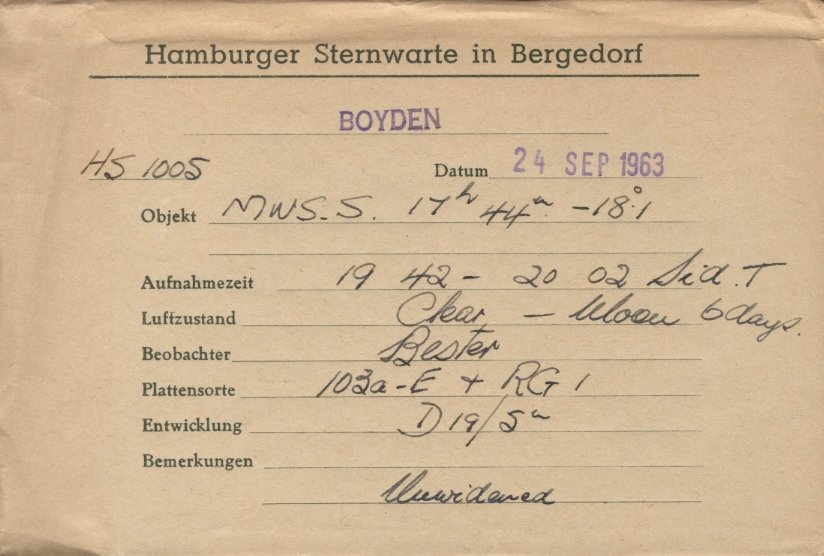 Hamburger Sternwarte in Bergedorf
BOYDEN
HS 1005 Datum 24 SEP 1963
Objekt MWS.S. 17h 44m -18°.1
Aufnahmezeit 19 42 - 20 02 Sid. T
Luftzustand Clear - Moon 6 days.
Beobachter Bester
Plattensorte 103a-E + RG 1
Entwicklung D 19/5m
Bemerkungen
Unwidened